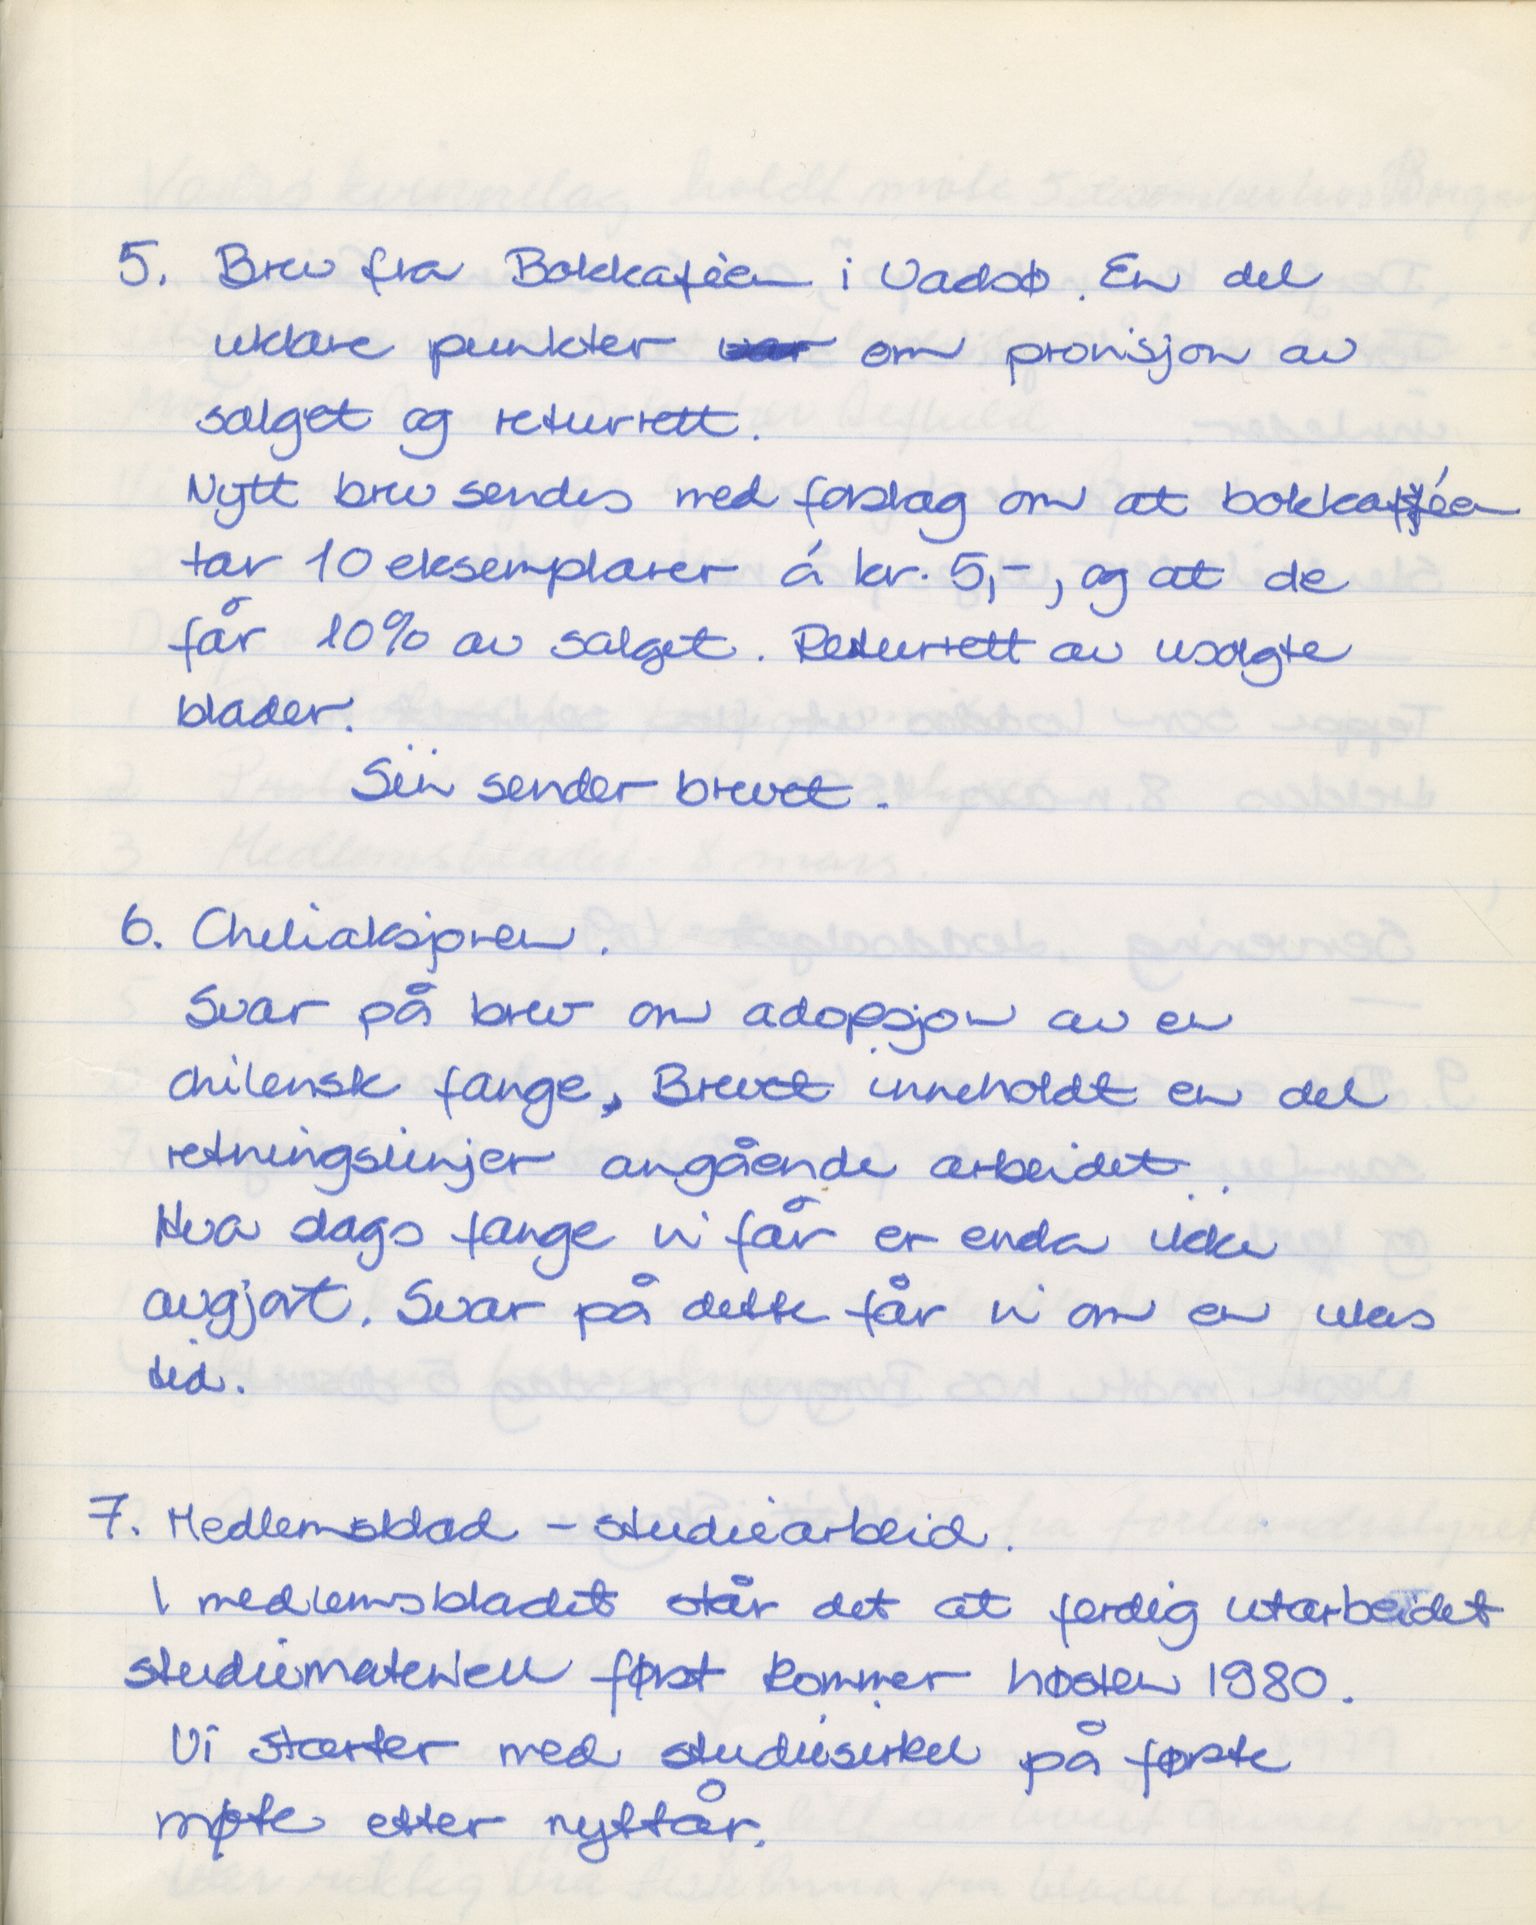 5. Brev fra Bokkaféen i Vadsø. En del
uklare punkter om provisjon av
salget og returrett.
Nytt brev sendes med forslag om at bokkaféen
tar 10 eksemplarer á kr. 5,-, og at de
får 10% av salget. Returrett av usolgte
blader.
Siw sender brevet.
6. Chileaksjonen.
Svar på brev om adopsjon av en
chilensk fange. Brevet inneholdt en del
retningslinjer angående arbeidet.
Hva slags fange vi får er enda ikke
avgjort. Svar på dette får vi om en ukes
tid.
7. Medlemsblad - studiearbeid.
I medlemsbladet står det at ferdig utarbeidet
studiemateriell først kommer høsten 1980.
Vi starter med studiesirkel på første
møte etter nyttår.